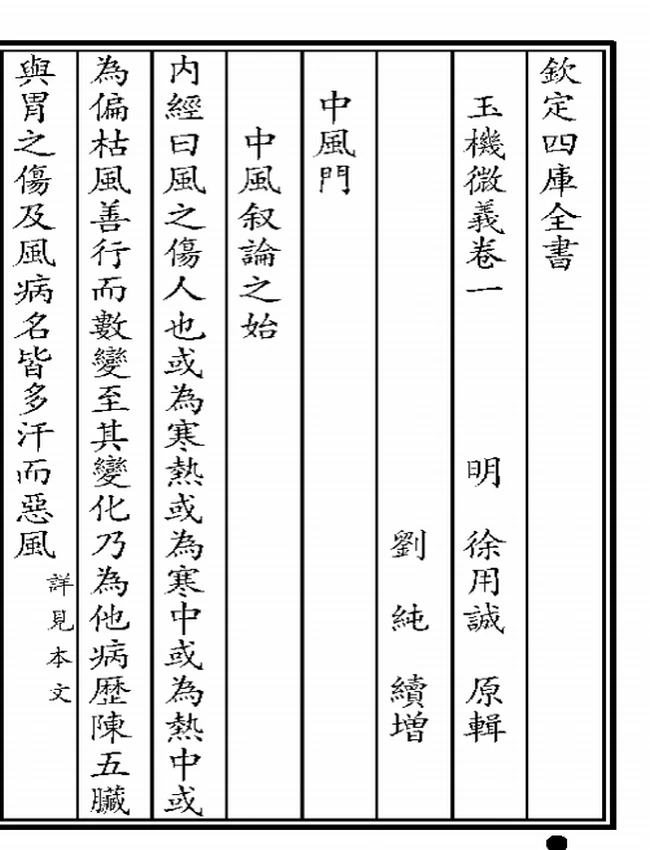 欽定四庫全書
玉機微義卷一 明 徐用誠 原輯
劉 純 續增
中風門
中風叙論之始
内經曰風之傷人也或為寒熱或為寒中或為熱中或
為偏枯風善行而數變至其變化乃為他病歴陳五臟
與胃之傷及風病名皆多汗而惡風詳見本文